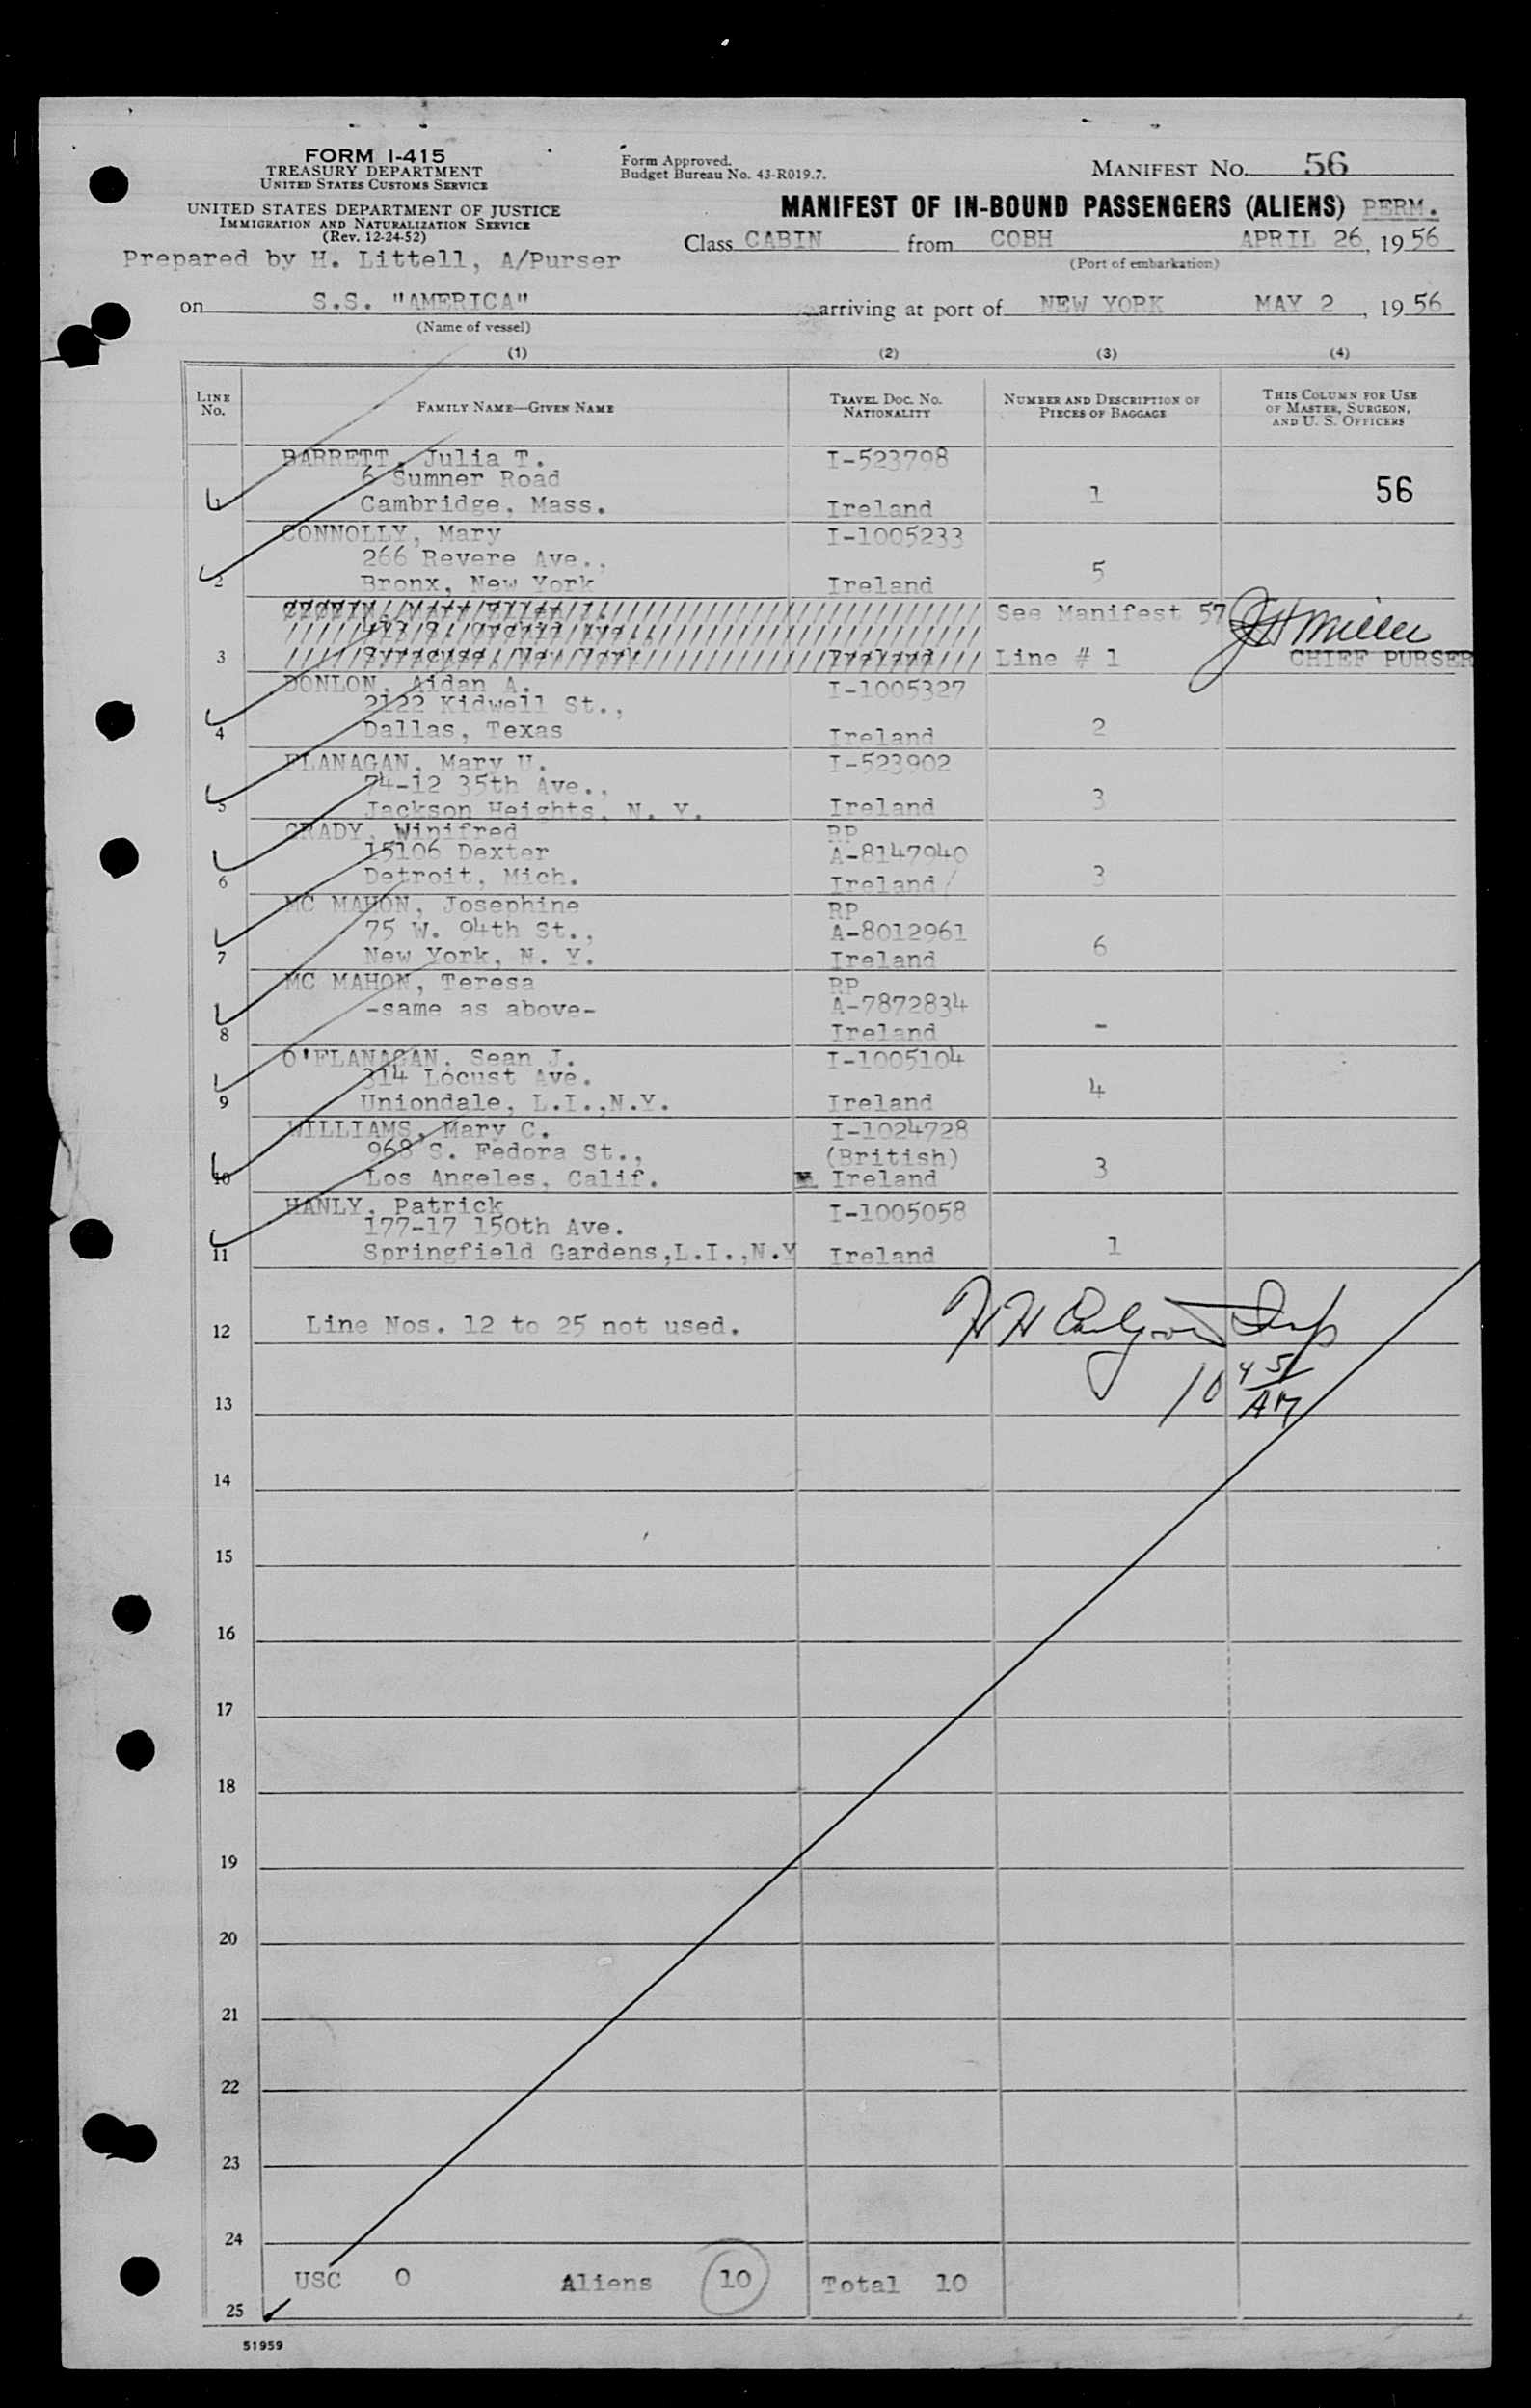 FORM I-415
TREASURY DEPARTMENT
UNITED STATES CUSTOMS SERVICE
UNITED STATES DEPARTMENT OF JUSTICE
IMMIGRATION AND NATURALIZATION SERVICE
(Rev. 12-24-52)
Prepared by H. Littell, A/Purser
Form Approved.
Budget Bureau No. 43-R019.7.
MANIFEST No. 56
MANIFEST OF IN-BOUND PASSENGERS (ALIENS) PERM.
Class CABIN from COBH APRIL 26, 1956
(Port of embarkation)
on S.S. "AMERICA" arriving at port of NEW YORK MAY 2, 1956
(Name of vessel)
(1) (2) (3) (4)
LINE No. FAMILY NAME—GIVEN NAME TRAVEL DOC. NO. NATIONALITY NUMBER AND DESCRIPTION OF PIECES OF BAGGAGE THIS COLUMN FOR USE OF MASTER, SURGEON, AND U. S. OFFICERS
BARRETT, Julia T. I-523798
6 Sumner Road
1 Cambridge, Mass. Ireland 1 56
CONNOLLY, Mary I-1005233
266 Revere Ave.,
2 Bronx, New York Ireland 5
Mary Ellen See Manifest 57 J H Miller
3 Syracuse, New York Ireland Line # 1 CHIEF PURSER
DONLON, Aidan A. I-1005327
2122 Kidwell St.,
4 Dallas, Texas Ireland 2
FLANAGAN, Mary U. I-523902
74-12 35th Ave.,
5 Jackson Heights, N. Y. Ireland 3
GRADY, Winifred RP
15106 Dexter A-8147940
6 Detroit, Mich. Ireland 3
MC MAHON, Josephine RP
75 W. 94th St., A-8012961
7 New York, N. Y. Ireland 6
MC MAHON, Teresa RP
-same as above- A-7872834
8 Ireland -
O'FLANAGAN, Sean J. I-1005104
314 Locust Ave.
9 Uniondale, L.I.,N.Y. Ireland 4
WILLIAMS, Mary C. I-1024728
968 S. Fedora St., (British)
10 Los Angeles, Calif. Ireland 3
HANLY, Patrick I-1005058
177-17 150th Ave.
11 Springfield Gardens,L.I.,N.Y Ireland 1
12 Line Nos. 12 to 25 not used.
10 45 AM
13
14
15
16
17
18
19
20
21
22
23
24
USC 0 Aliens 10 Total 10
25
51959